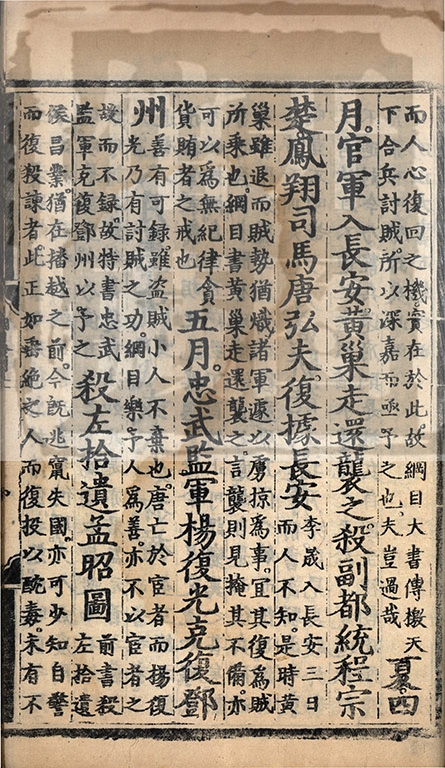 而人心復回之機實在於此故綱目大書傳檄天
下合兵討賊所以深嘉而亟予之也夫豈過哉
夏四
月官軍入長安黃巢走還襲之殺副都統程宗
楚鳳翔司馬唐弘夫復據長安
李晟入長安三日
而人不知是時黃
巢雖退而賊勢猶熾諸軍遽以虜掠為事宜其復為賊
所乘也綱目書黃巢走還襲之言襲則見掩其不備亦
可以為無紀律貪
貨賄者之戒也
五月忠武監軍楊復光克復鄧
州
善有可錄雖盜賊小人不棄也唐亡於宦者而楊復
光乃有討賊之功綱目樂予人為善亦不以宦者之
故而不錄故特書忠武
監軍克復鄧州以予之
殺左拾遺孟昭圖
前書殺
左拾遺
侯昌業猶在播越之前今既兆竄失國亦可少知自警
而復殺諫者此正如垂絕之人而復投以酖毒未有不